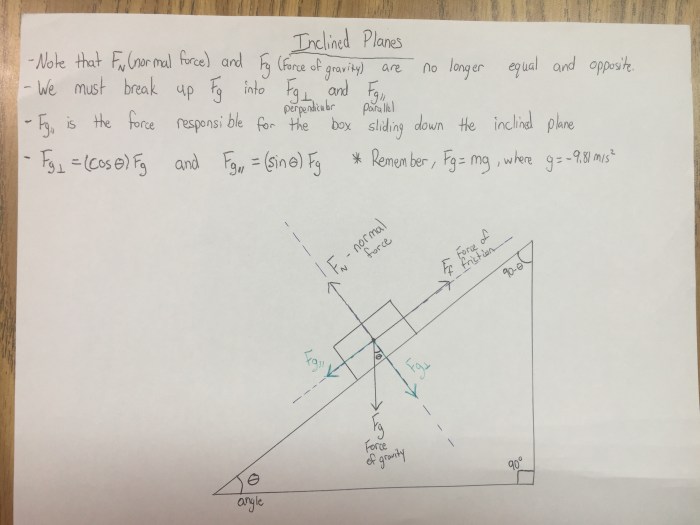 Inclined Planes
- Note that FN (normal force) and Fg (Force of gravity) are no longer equal and opposite.
- We must break up Fg into Fg⊥ and Fg//
perpendicular parallel
- Fg// is the force responsible for the box sliding down the inclined plane
- Fg⊥ = (cosθ) Fg and Fg// = (sinθ) Fg * Remember, Fg = mg, where g = -9.81 m/s²
FN - normal force
Ff Force of friction
90-θ
Fg//
θ
Fg⊥
Fg
Force of gravity
θ
angle
90°